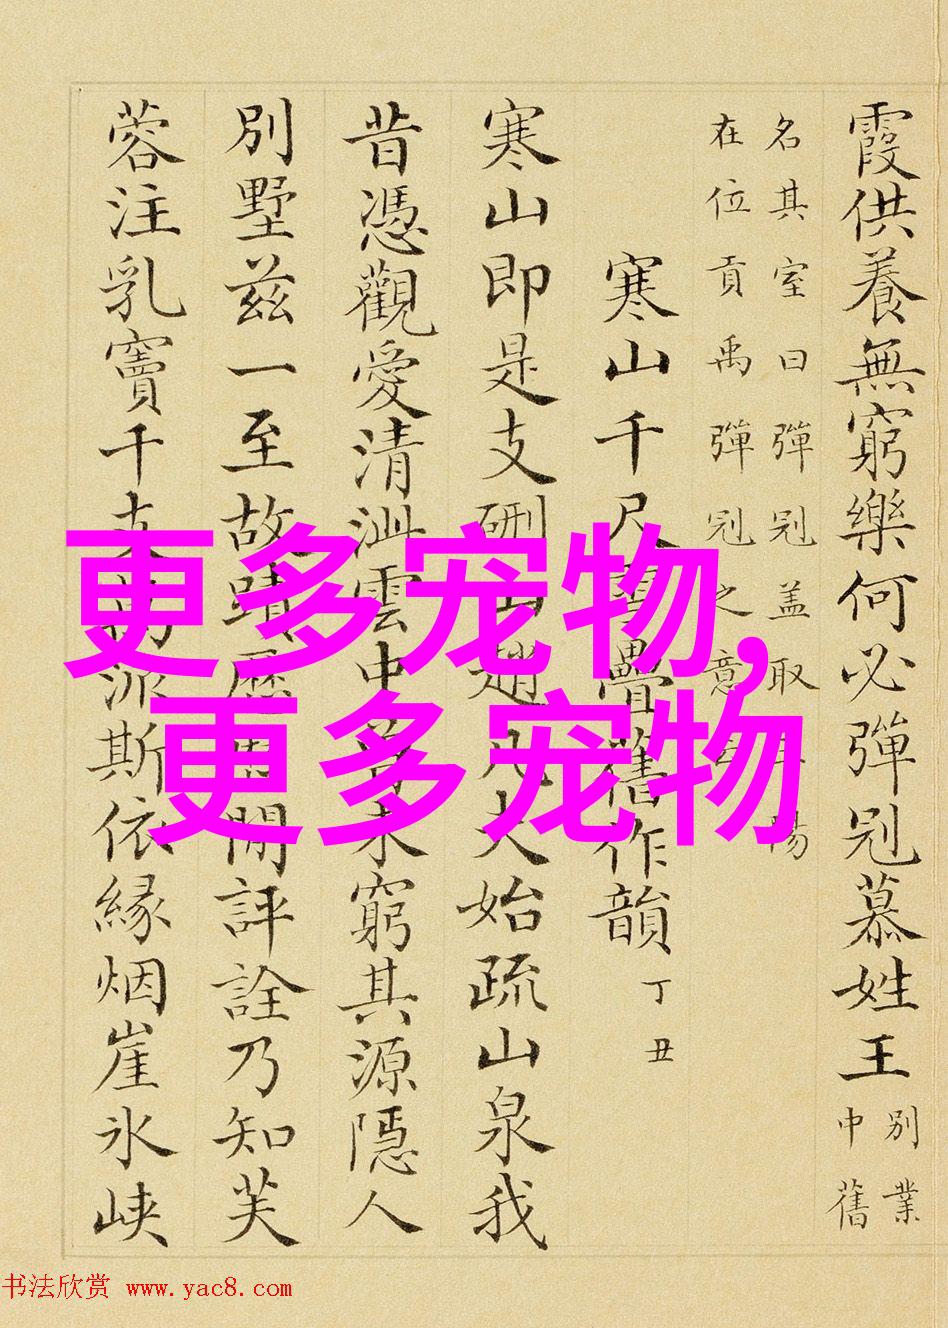 霞供養無窮樂何必彈冠慕姓王
別業
中舊
名其室曰彈冠盖取陽
在位貢禹彈冠之意
寒山千尺雪疊舊作韻 丁丑
寒山即是支硎山趙凡夫始疏山泉我
昔憑觀愛清泚雲中未窮其源隱人
別墅兹一至故蹟歷閒評詮乃知芙
蓉注乳竇千支萬派斯依緣烟崖氷峡
更多宠物,
更多宠物
书法欣赏 www.yac8.com